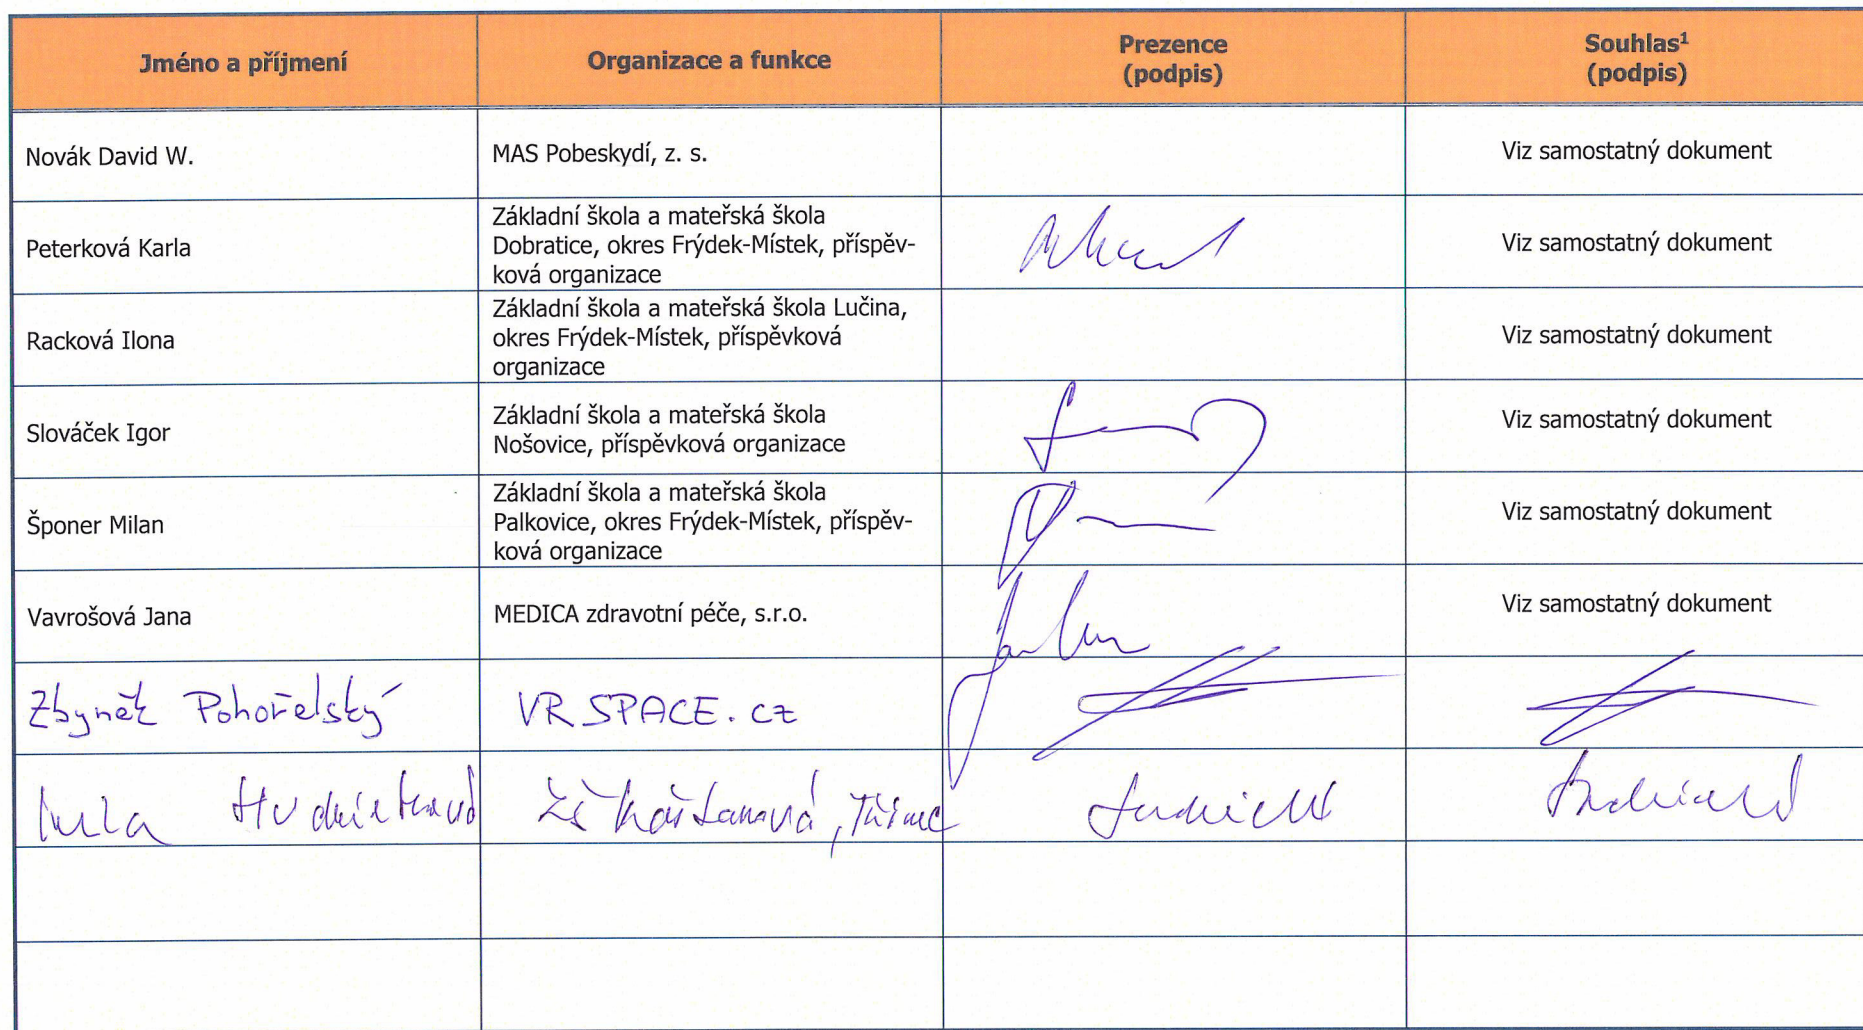 Jméno a příjmení
Organizace a funkce
Prezence
(podpis)
Souhlas¹
(podpis)
Novák David W.
MAS Pobeskydí, z. s.
Viz samostatný dokument
Peterková Karla
Základní škola a mateřská škola
Dobratice, okres Frýdek-Místek, příspěv-
ková organizace
Viz samostatný dokument
Racková Ilona
Základní škola a mateřská škola Lučina,
okres Frýdek-Místek, příspěvková
organizace
Viz samostatný dokument
Slováček Igor
Základní škola a mateřská škola
Nošovice, příspěvková organizace
Viz samostatný dokument
Šponer Milan
Základní škola a mateřská škola
Palkovice, okres Frýdek-Místek, příspěv-
ková organizace
Viz samostatný dokument
Vavrošová Jana
MEDICA zdravotní péče, s.r.o.
Viz samostatný dokument
Zbyněk Pohořelský
VR SPACE.cz
ZŠ Koštanová, Třinec